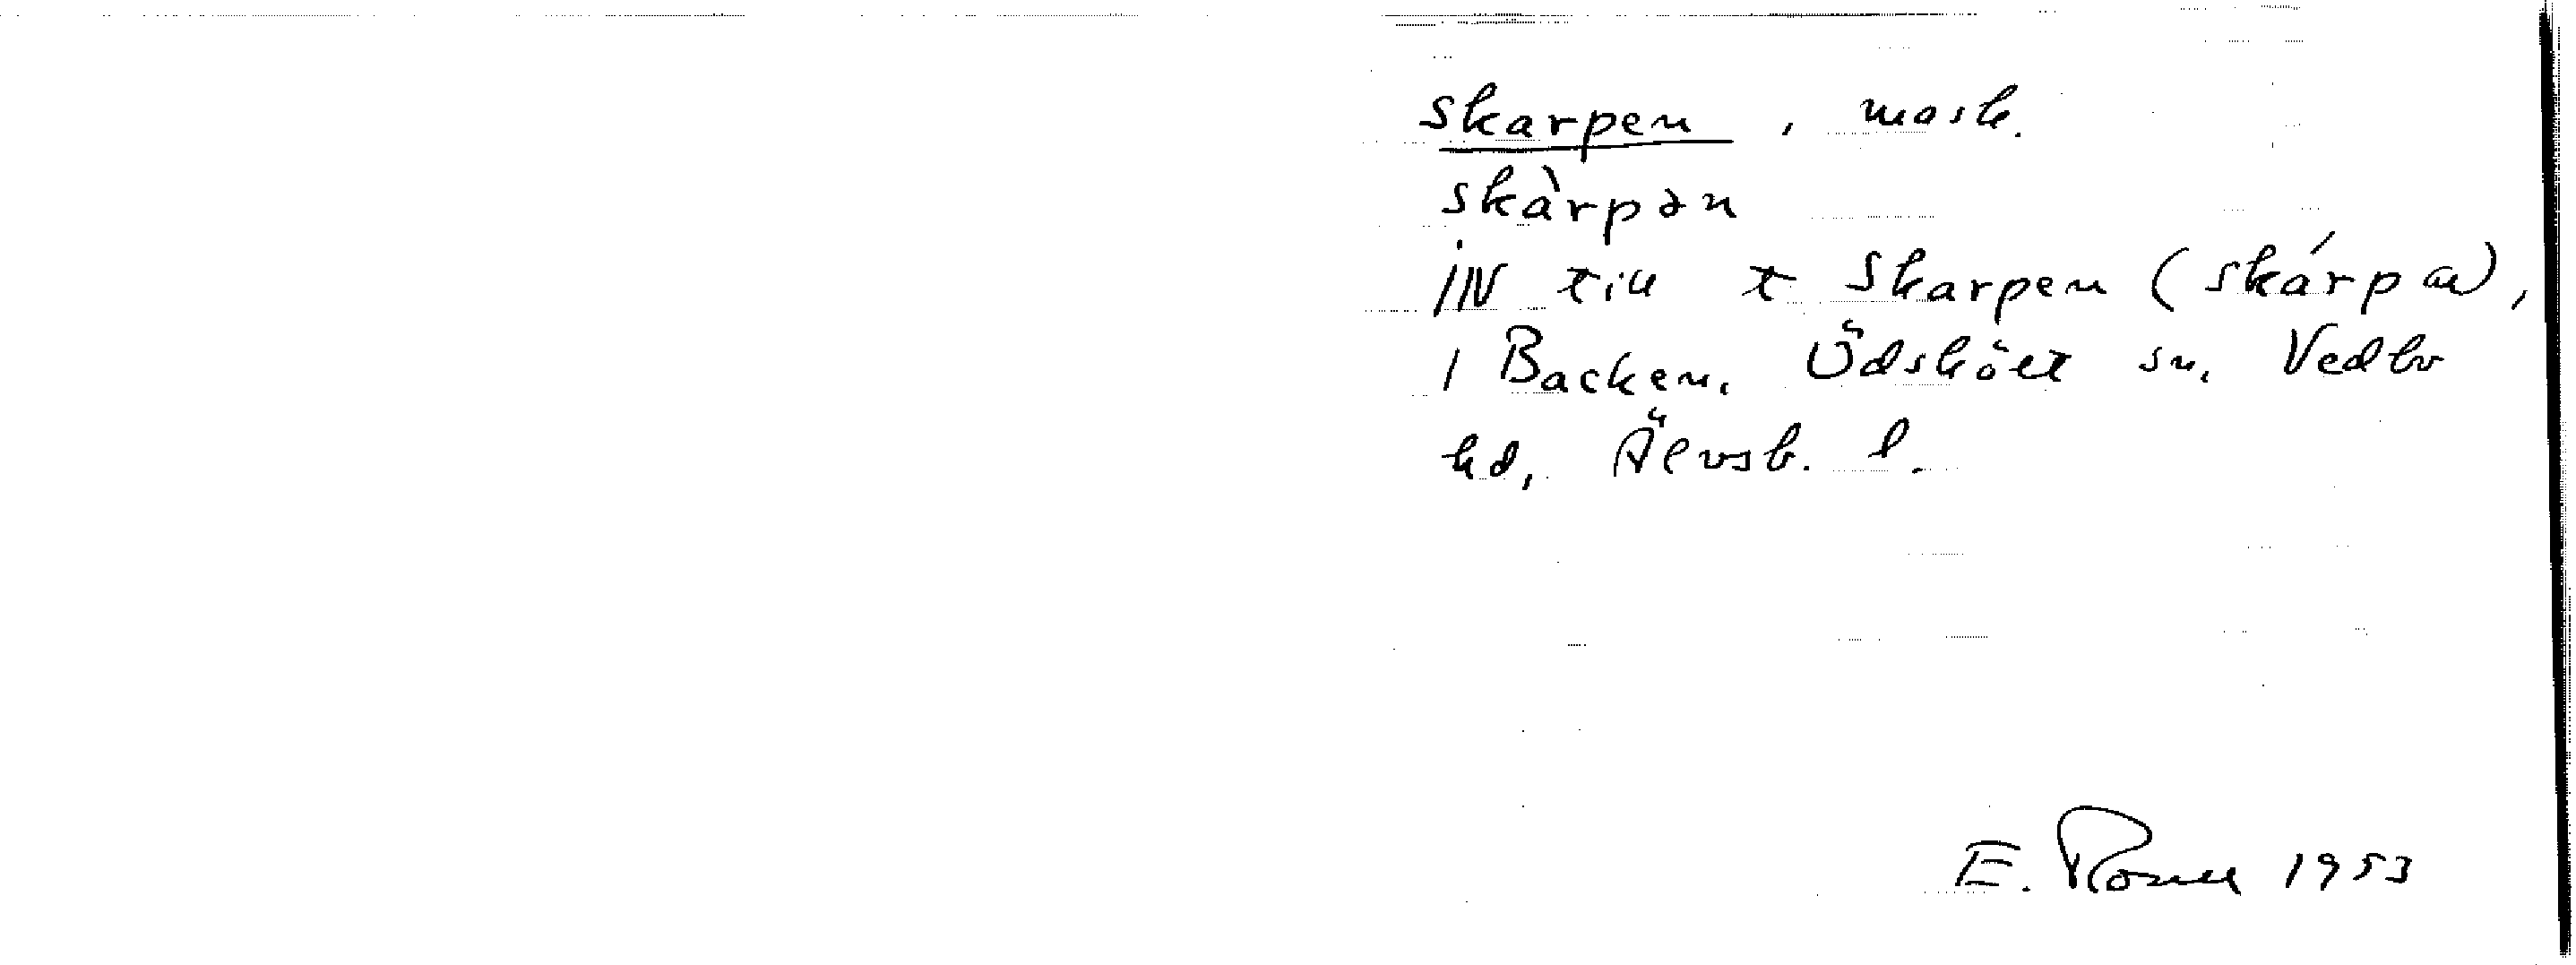 skarpen, mask.
skàrpən
IN till t Skarpen (skárpən),
1 Backen. Ödskölt sn, Vedbo
hd, Älvsb. l.
E. 1953